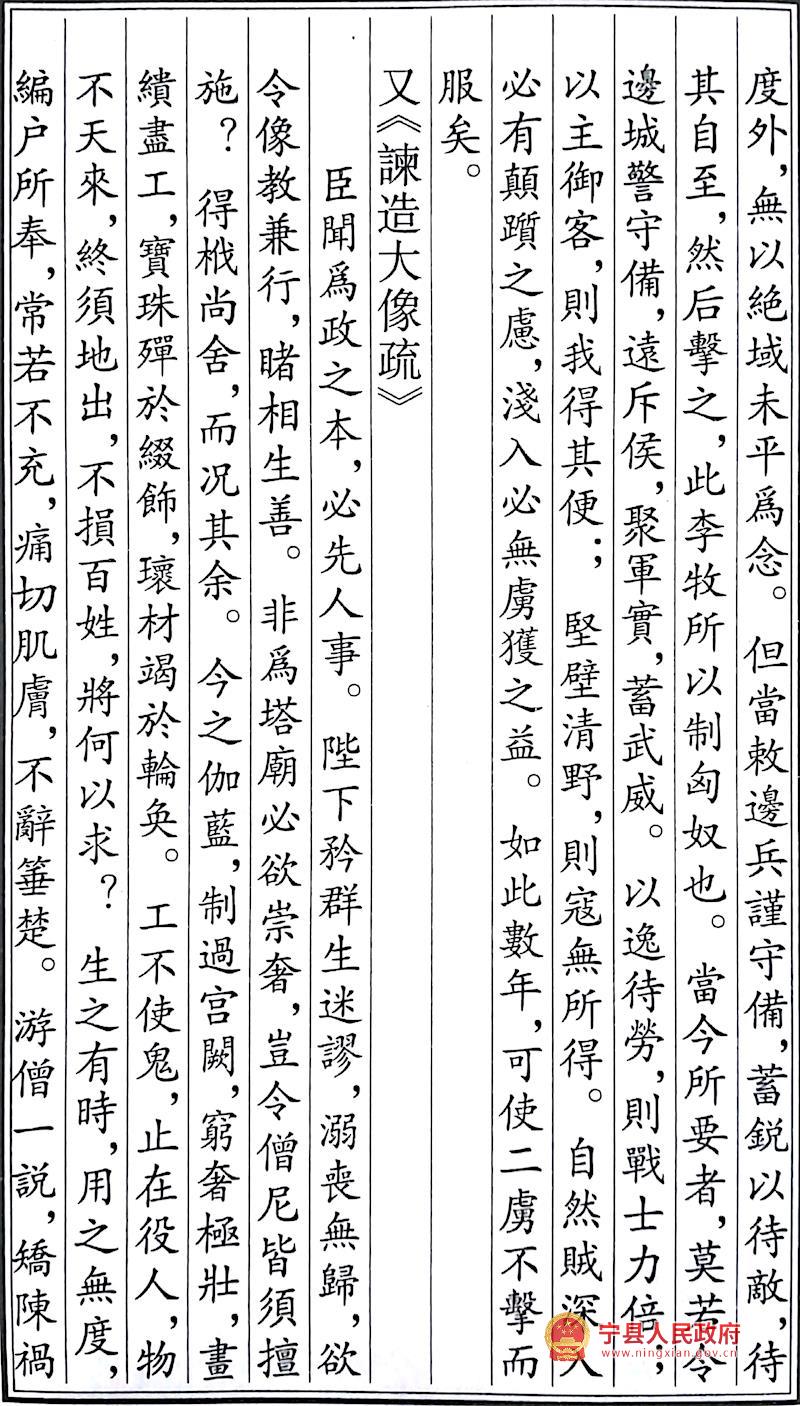 度外，無以絕域未平爲念。但當敕邊兵謹守備，蓄鋭以待敵，待
其自至，然后擊之，此李牧所以制匈奴也。當今所要者，莫若令
邊城警守備，遠斥侯，聚軍實，蓄武威。以逸待勞，則戰士力倍，
以主御客，則我得其便；堅壁清野，則寇無所得。自然賊深入
必有顛躓之慮，淺入必無虜獲之益。如此數年，可使二虜不擊而
服矣。
又《諫造大像疏》
臣聞爲政之本，必先人事。陛下矜群生迷謬，溺喪無歸，欲
令像教兼行，睹相生善。非爲塔廟必欲崇奢，豈令僧尼皆須擅
施？得栰尚舍，而况其余。今之伽藍，制過宫闕，窮奢極壯，畫
繢盡工，寶珠殫於綴飾，瓌材竭於輪奂。工不使鬼，止在役人，物
不天來，終須地出，不損百姓，將何以求？生之有時，用之無度，
編户所奉，常若不充，痛切肌膚，不辭箠楚。游僧一説，矯陳禍
宁县人民政府
www.ningxian.gov.cn